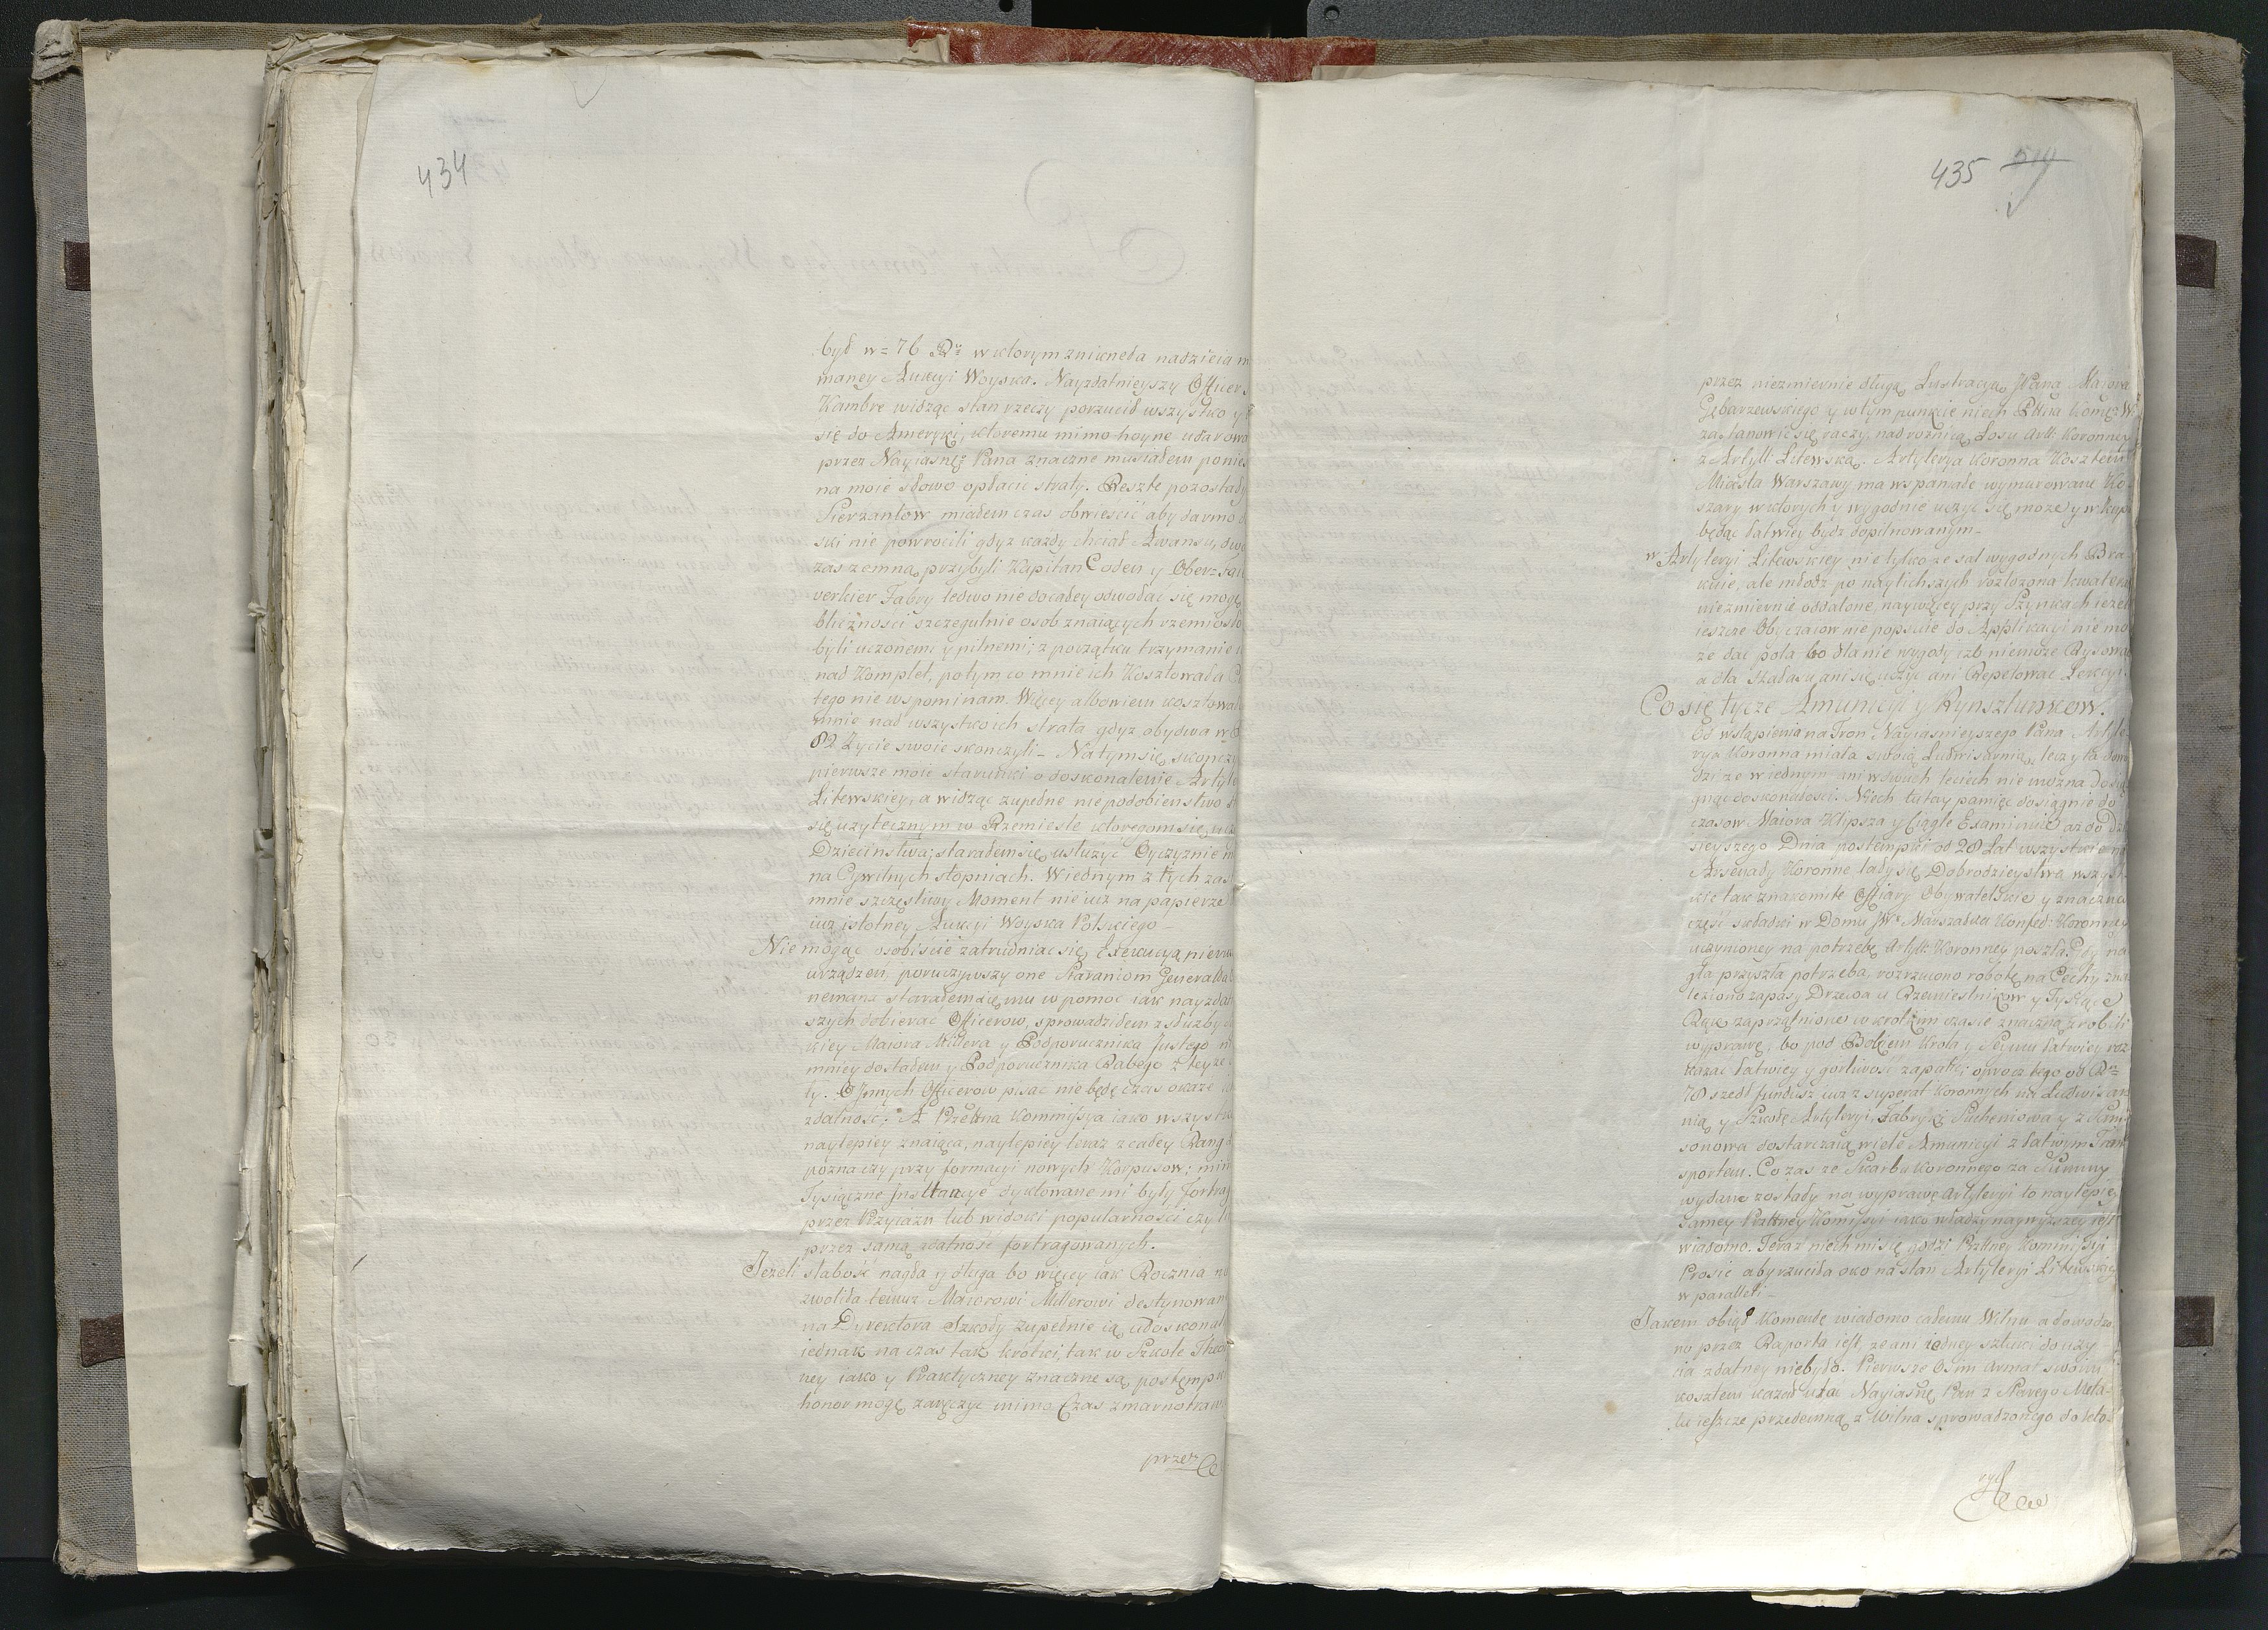 434
był w = 76 Ru w ktorym zniknęła nadzieia m
maney Aukcyi Woyska. Nayzdatnieyszy Officer
Kambre widząc stan rzeczy porzucił wszystko y
się do Ameryki, ktoremu mimo hoyne udarowa
przez Nayiasnę: Pana znaczne musiałem ponieś
na moie słowo opłacić straty. Resztę pozostały
Sierżantow miałem czas obwieścić aby darmo
ski nie powrocili gdyż każdy chciał Awansu, dwa
zas zemną przybyli Kapitan Coden y Ober=faie
verkier Fabry ledwo nie docałey odwołać się mogę
bliczności szczegulnie osob znaiących rzemiosło
byli uczonemi y pilnemi; z początku trzymanie
nad Komplet, potym co mnie ich Kosztowała
tego nie wspominam. Więcey albowiem kosztowa
mnie nad wszystko ich strata gdyż obydwa w
82 Życie swoie skonczyli – Natym się skonczy
pierwsze moie starunki o doskonalenie Artyle
Litewskiey, a widząc zupełne niepodobienstwo
się uzytecznym w Rzemieśle ktoregom się ucz
Dziecinstwa; starałem się usłużyć Oyczyznie
na Cywilnych stopniach. Wiednym z tych zas
mnie szczęsliwy Moment nie iuż na papierze
iuż istotney Aukcyi Woyska Polskiego –
Nie mogąc osobiście zatrudniac się Exekucyą pierw
urządzen, poruczywszy one Staraniom Generała
nemanz starałem się mu w pomoc iak nayzdat
szych dobierać Officerow, sprowadziłem z służby
kiey Maiora Millera y Podporucznika Justego
mniey dostałem y Podporucznika Rabego z teyże
ty. O Jnnych Officerow pisać nie będę czas okaże
zdatność: A Przetna Kommissya iako wszystko
naylepiey znaiąca, naylepiey teraz z całey Rang
pozna czy przy formacyi nowych Korpusow;
Tysiączne Jnstancye dyktowane mi były fortrag
przez Przyiazn lub widoki popularności czy
przez samą zdatność fortragowanych.
Jeżeli słabość nagła y długa bo więcey iak Roczna
zwoliła temuż Maiorowi Millerowi destynowan
na Dyrektora Szkoły zupełnie ią udoskonal
iednak na czas tak krotki, tak w Szkole Theor
ney iako y Praktyczney znaczne są postęmpk
honor mogę zaręczyć mimo Czas zmarnotraw
przez
435
przez niezmiernie długą Lustracyą JPana Maiora
Gębarzewskiego y wtym punkcie niech Pttna Komę: W:
zastanowić się raczy, nad rożnicą Losu Artt: Koronney
z Artyll: Litewską. Artylerya Koronna Kosztem
Miasta Warszawy ma wspaniałe wymurowane Ko
szary w ktorych y wygodnie uczyć się może y w kup
będąc łatwiey bydz dopilnowanym –
w Artyleryi Litewskiey nie tylko ze sal wygodnych Bra
kuie, ale młodz po naylichszych rozłożona kwatera
niezmiernie oddalone, naywięcey przy Szynkach ieżel
ieszcze Obyczaiow nie popsuie do Applikacyi nie mo
że dać pola bo dla nie wygody czł: niemoże Rysować
a dla Hałasu ani się uczyć ani Repetować Lekcyi.
Co się tycze Amunicyi y Rynsztunkow.
Od wstąpienia na Tron Nayiasnieyszego Pana Artyle
rya Koronna miała swoią Ludwisarnią, lecz y ta dowo
dzi ze wiednym ani w dwuch leciech nie można dosią
gnąc doskonałości. Niech tutay pamięć dosiągnie do
czasow Maiora Klypsza y Ciągle Examinuie aż do Dzi
sieyszego Dnia postempki od 28 Lat wszystkie na
Arsenały Koronne lały się Dobrodzieystwa wszyst
kie tak znakomite Offiary Obywatelskie y znaczna
część składki w Domu JW: Marszałka Konfed: Koronney
uczynioney na potrzebę Artyll: Koronney poszła. Gdy na
gła przyszła potrzeba, rozrzucono robotę na Cechy zna
leziono zapasy Drzewa u Rzemieslnikow y Tysiące
Rąk zaprzątnione w krotkim czasie znaczną zrobili
wyprawę, bo pod Bokiem Krola y Seymu łatwiey roz
kazać łatwiey y gorliwość zapalić; oprocz tego od Ru
78 szedł fundusz iuz z superat Koronnych na Ludwisar
nią y Szkołę Artyleryi, Fabryki Sucheniowa y z Sam
sonowa dostarczaią wiele Amunicyi z łatwym Tran
sportem. Co zas ze Skarbu Koronnego za Summy
wydane zostały na wyprawę Artyleryi to naylepiey
Samey Prttney Komissyi iako władzy naywyższey iest
wiadomo. Teraz niech mi się godzi Prttney Kommissyi
Prosić aby rzuciła oko na stan Artyleryi Litewskiey
w paralleli –
Jakem obiął Komendę wiadomo całemu Wilnu a dowodzo
no przez Raporta iest, ze ani iedney sztuki do uzy
cia zdatney niebyło. Pierwsze Osm Armat swoim
kosztem kazał ulać Nayiasnę: Pan z Starego Meta-
lu ieszcze przedemną z Wilna sprowadzonego do ktor
rych